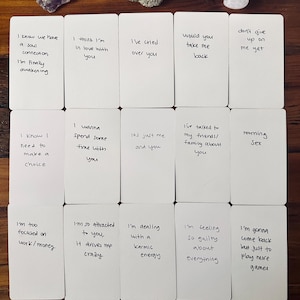 I know we have
a soul
connection
I'm finally
awakening
I think I'm
in love with
you
I've cried
over you
Would you
take me
back
don't give
up on
me yet
I know I
need to
make a
choice
I wanna
spend some
time with
you
it's just me
and you
I've talked to
my friends/
family about
you
morning
sex
I'm too
focused on
work/money
I'm so attracted
to you,
it drives me
crazy
I'm dealing
with a
karmic
energy
I'm feeling
so guilty
about
everything
I'm gonna
come back
but just to
play more
games